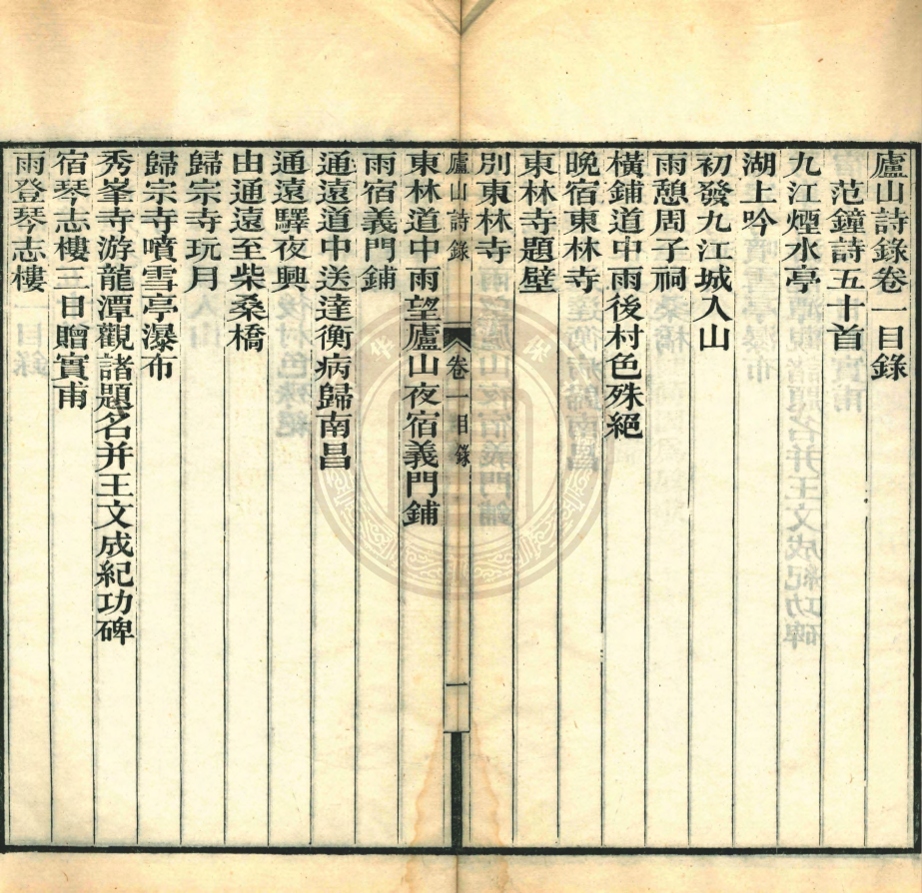 廬山詩錄卷一目錄
范鐘詩五十首
九江煙水亭
湖上吟
初發九江城入山
雨憩周子祠
橫鋪道中雨後村色殊絕
晚宿東林寺
東林寺題壁
別東林寺
廬山詩錄 卷一目錄 一
東林道中雨望廬山夜宿義門鋪
雨宿義門鋪
通遠道中送達衡病歸南昌
通遠驛夜興
由通遠至柴桑橋
歸宗寺玩月
歸宗寺噴雪亭瀑布
秀峯寺游龍潭觀諸題名并王文成紀功碑
宿琴志樓三日贈實甫
雨登琴志樓